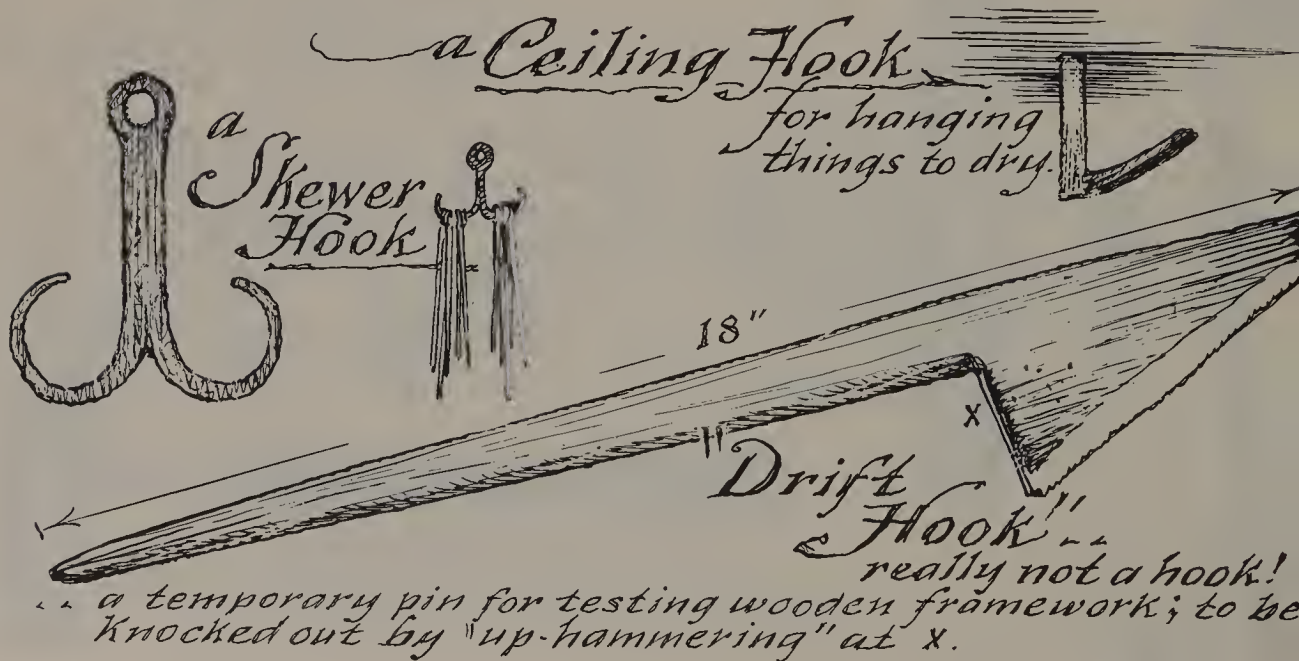 a Ceiling Hook
for hanging
things to dry.
a
Skewer
Hook
18"
X
"Drift
Hook"..
really not a hook!
.. a temporary pin for testing wooden framework; to be
knocked out by "up-hammering" at X.